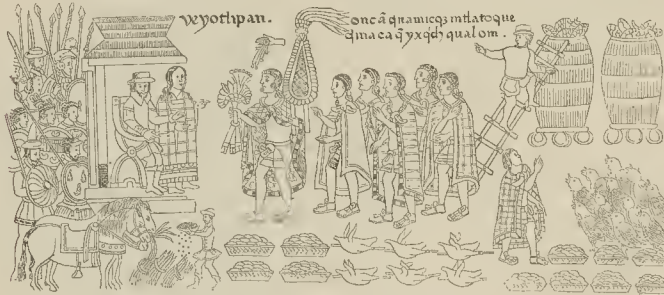 veyotlipan.
oncā q̄namicqʒ intlatoque
q̄macaq̄ yxq̄ch qualom.